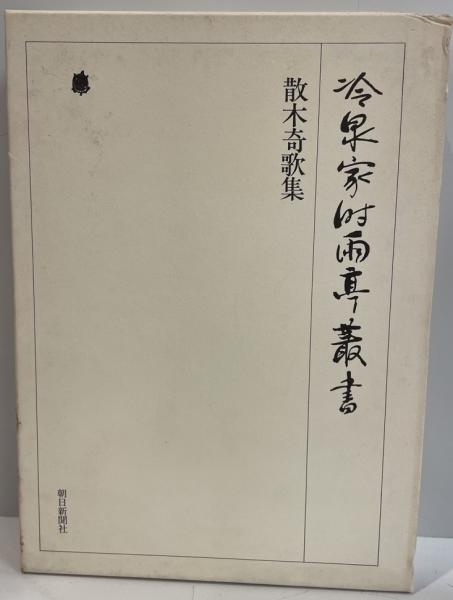 冷泉家时雨亭叢書
散木奇歌集
朝日新聞社